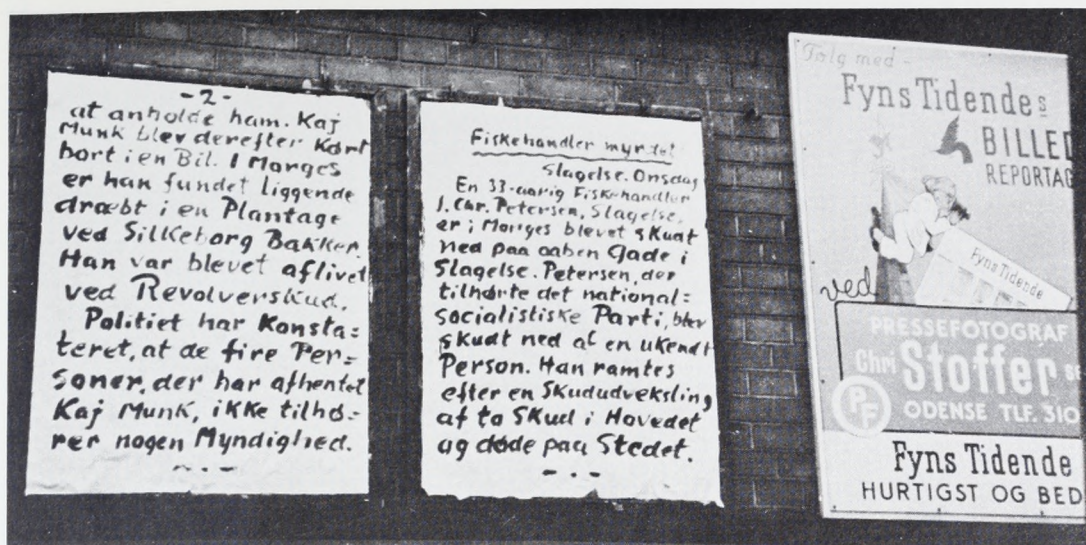 - 2 -
at anholde ham. Kaj
Munk blev derefter Kørt
bort i en Bil. I Morges
er han fundet liggende
dræbt i en Plantage
ved Silkeborg Bakker.
Han var blevet aflivet
ved Revolverskud.
Politiet har Konsta=
teret, at de fire Per=
soner, der har afhentet
Kaj Munk, ikke tilhø-
rer nogen Myndighed.
Fiskehandler myrdet
Slagelse. Onsdag
En 33-aarig Fiskehandler
J. Chr. Petersen, Slagelse,
er i Morges blevet skudt
ned paa aaben Gade i
Slagelse. Petersen, der
tilhørte det national=
socialistiske Parti, blev
skudt ned af en ukendt
Person. Han ramtes
efter en Skududveksling
af to Skud i Hovedet
og døde paa Stedet.
Følg med -
Fyns Tidendes
BILLED
REPORTAG
Fyns Tidende
ved
PRESSEFOTOGRAF
Chr. Stoffer se
PF
ODENSE TLF. 310
Fyns Tidende
HURTIGST OG BED